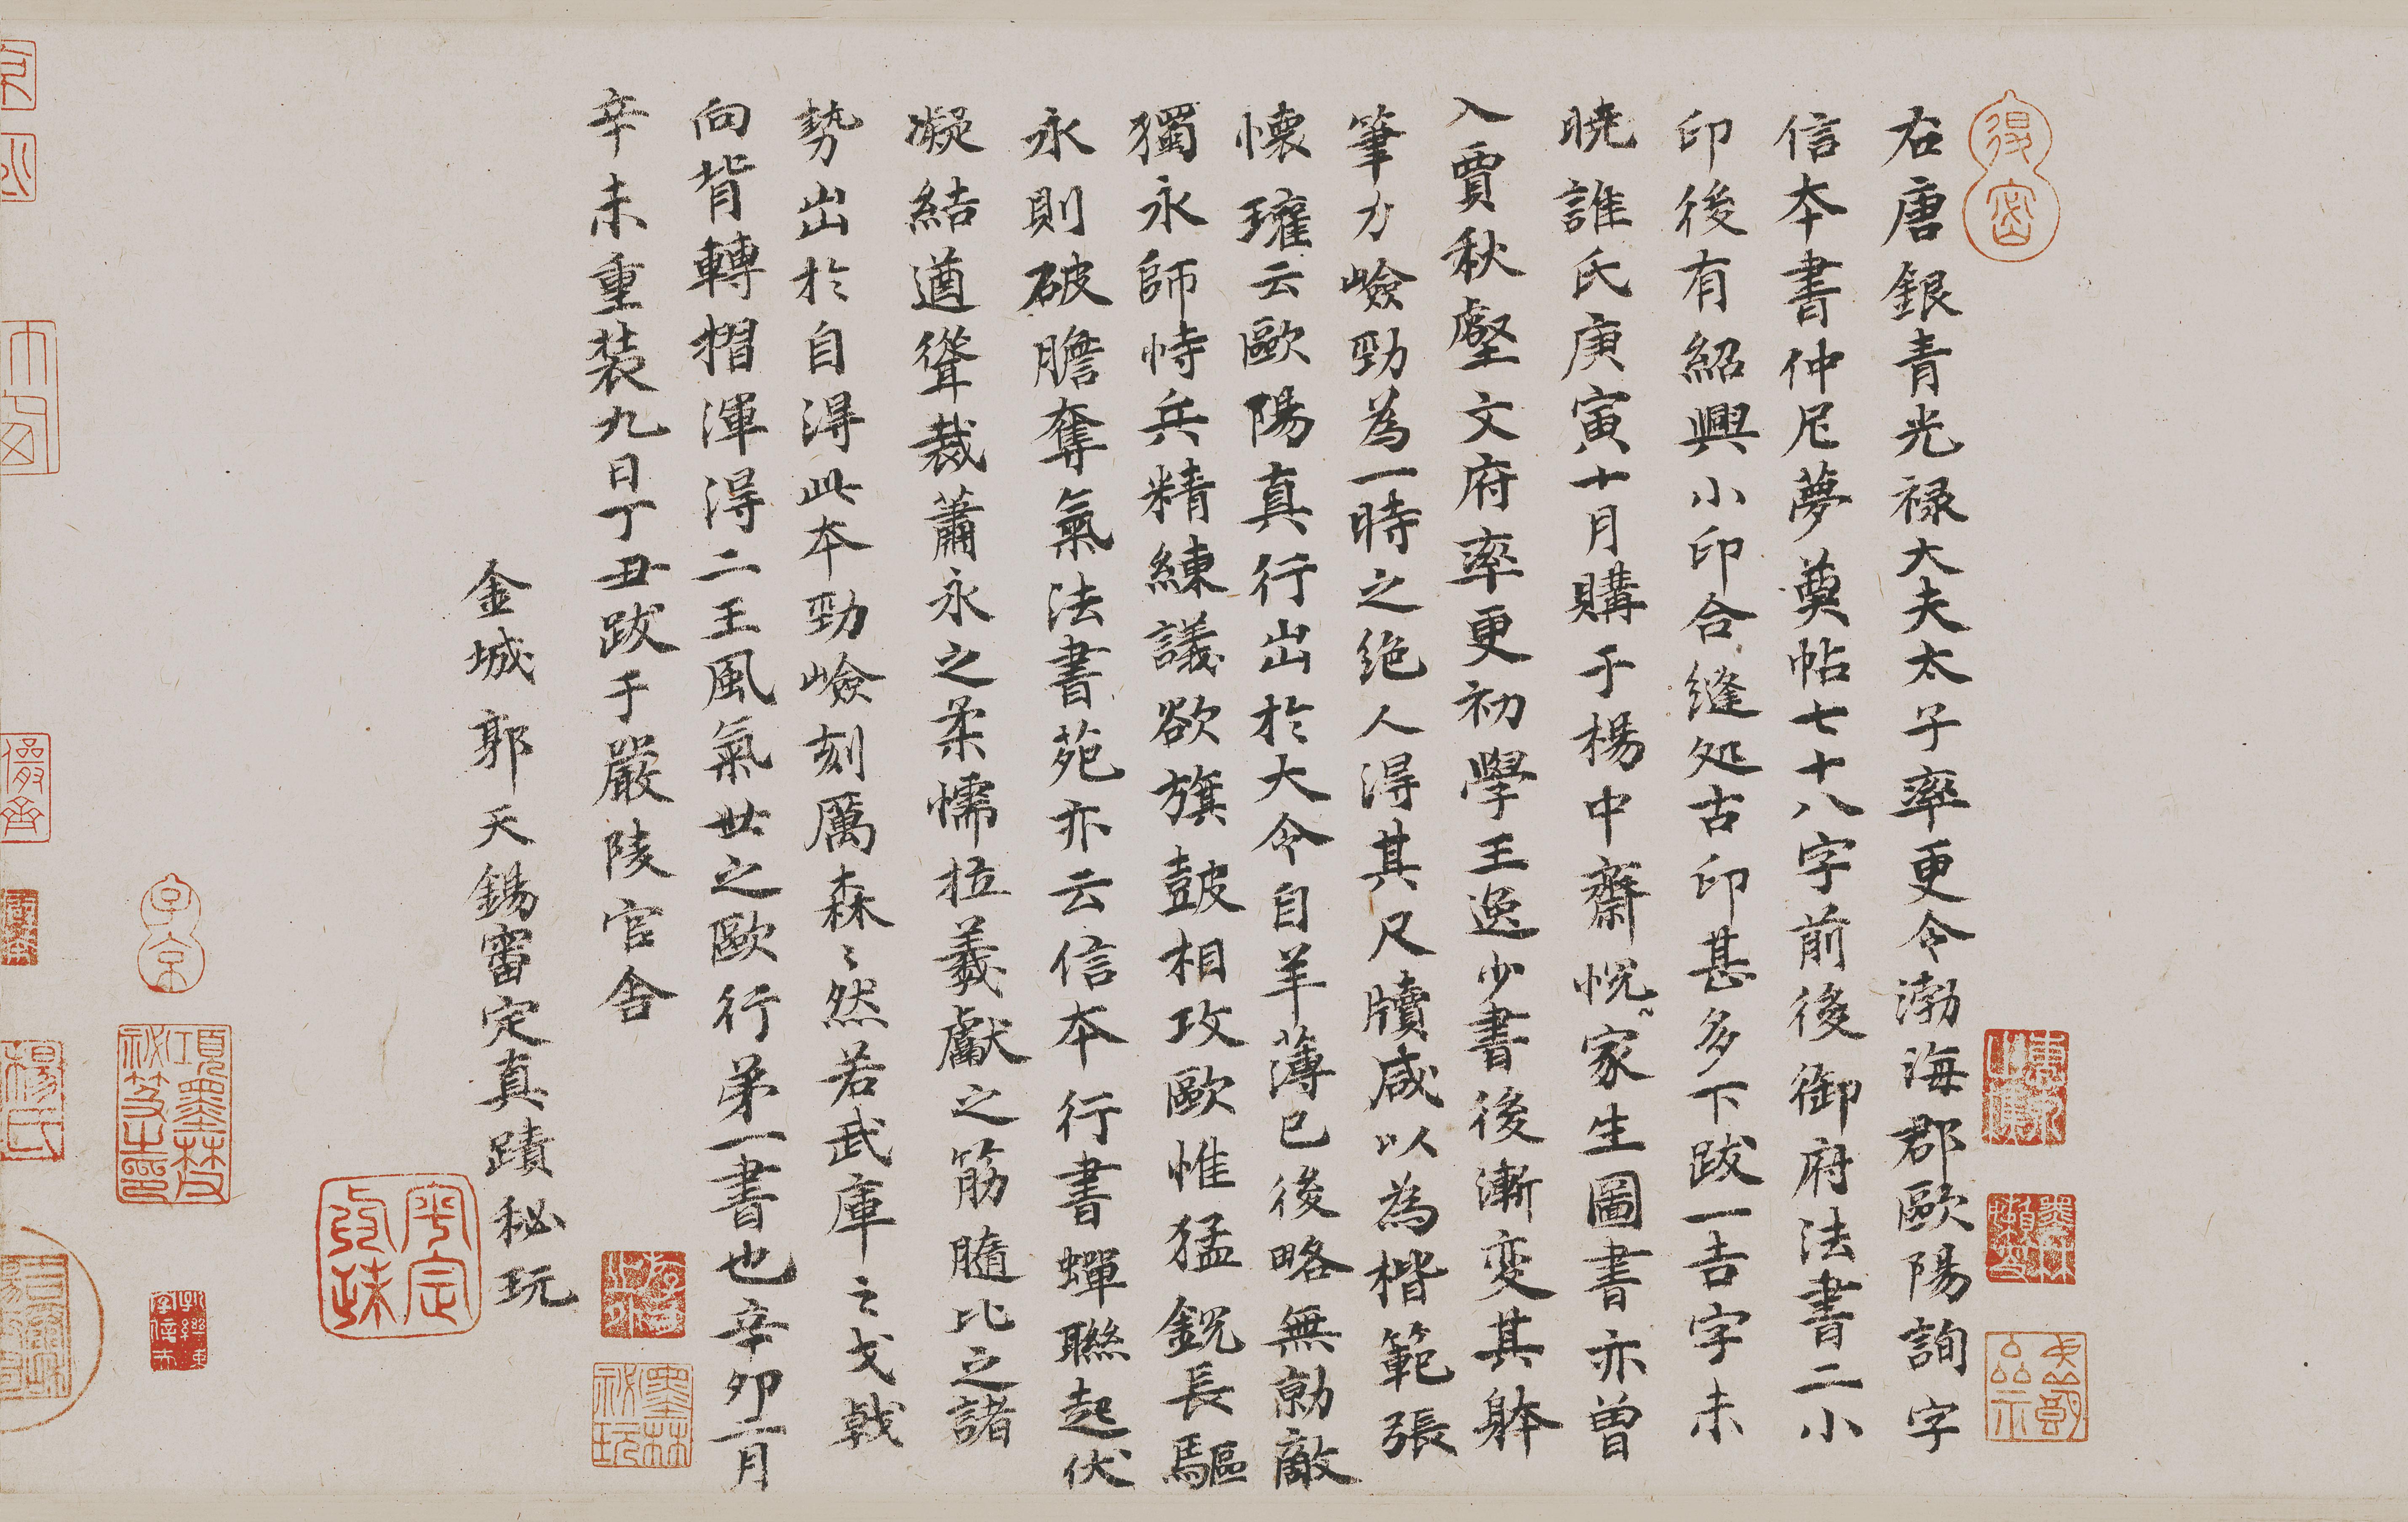 右唐銀青光禄大夫太子率更令渤海郡歐陽詢字
信本書仲尼夢奠帖七十八字前後御府法書二小
印後有紹興小印合縫処古印甚多下跋一吉字未
曉誰氏庚寅十月購于楊中齋怳家生圖書亦曾
入賈秋壑文府率更初學王逸少書後漸变其躰
筆力嶮勁為一時之絶人得其尺牘咸以為楷範張
懐瓘云歐陽真行出於大令自羊薄已後略無勍敵
獨永師恃兵精練議欲旗鼓相攻歐惟猛鋭長驅
永則破膽奪氣法書苑亦云信本行書蟬聯起伏
凝結遒聳裁蕭永之柔懦拉羲獻之筋膸比之諸
勢出於自淂此本勁嶮刻厲森〻然若武庫之戈戟
向背轉摺渾淂二王風氣世之歐行弟一書也辛卯二月
辛未重装九日丁丑跋于嚴陵官舍
金城郭天錫審定真蹟秘玩
得密
子京
項墨林父秘笈之印
平定
墨林秘玩
楊氏